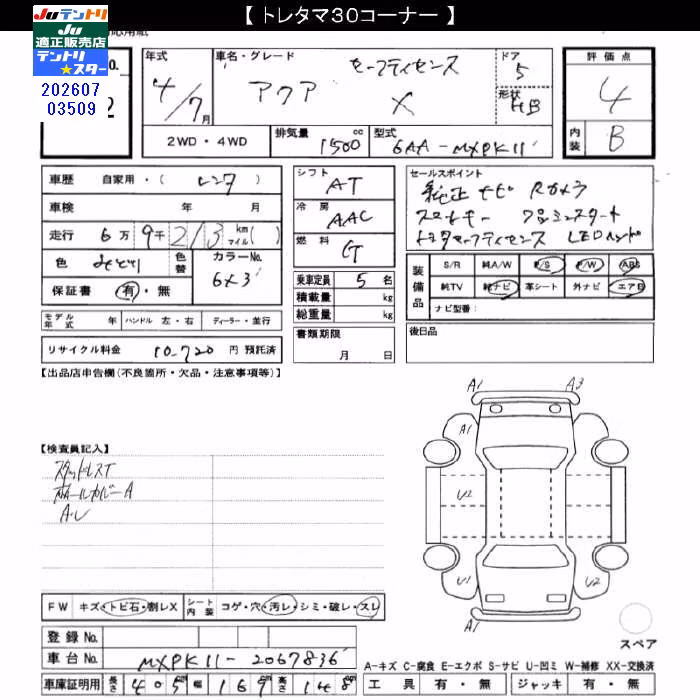 【 トレタマ30コーナー 】
Juテントリ
Ju
適正販売店
テントリ
★スター
応用紙
202607
03509
No.
2
年式 4/7月
車名・グレード セーフティセンス
アクア X
ドア 5
形状 HB
評価点 4
内装 B
2WD・4WD
排気量 1500 cc
型式 6AA-MXPK11
車歴 自家用・( レンタ )
車検 年 月
走行 6万 9千 213 km マイル( )
色 みどり 色替 カラーNo. 6X3
保証書 有・無
シフト AT
冷房 AAC
燃料 G
乗車定員 5 名
積載量 kg
総重量 kg
書類期限
月 日
セールスポイント
純正ナビ Rカメラ
スマートキー プッシュスタート
トヨタセーフティセンス LEDヘッド
装備品
S/R 純A/W P/S P/W ABS
純TV 純ナビ 革シート 外ナビ エアB
ナビ型番:
後日品
モデル年式 年 ハンドル 左・右 ディーラー・並行
リサイクル料金 10,720 円 預託済
【出品店申告欄(不良箇所・欠品・注意事項等)】
【検査員記入】
スタッドレスT
ホイールカバーA
A・U
A1 A3
A1
U2
U1 U2
A1
スペア
FW キズ・トビ石・割レX
シート内装 コゲ・穴・汚レ・シミ・破レ・スレ
登録 No.
車台 No. MXPK11-2067836
車庫証明用 長さ 405 cm 幅 169 cm 高さ 148 cm
A-キズ C-腐食 E-エクボ S-サビ U-凹ミ W-補修 XX-交換済
工具 有・無 ジャッキ 有・無